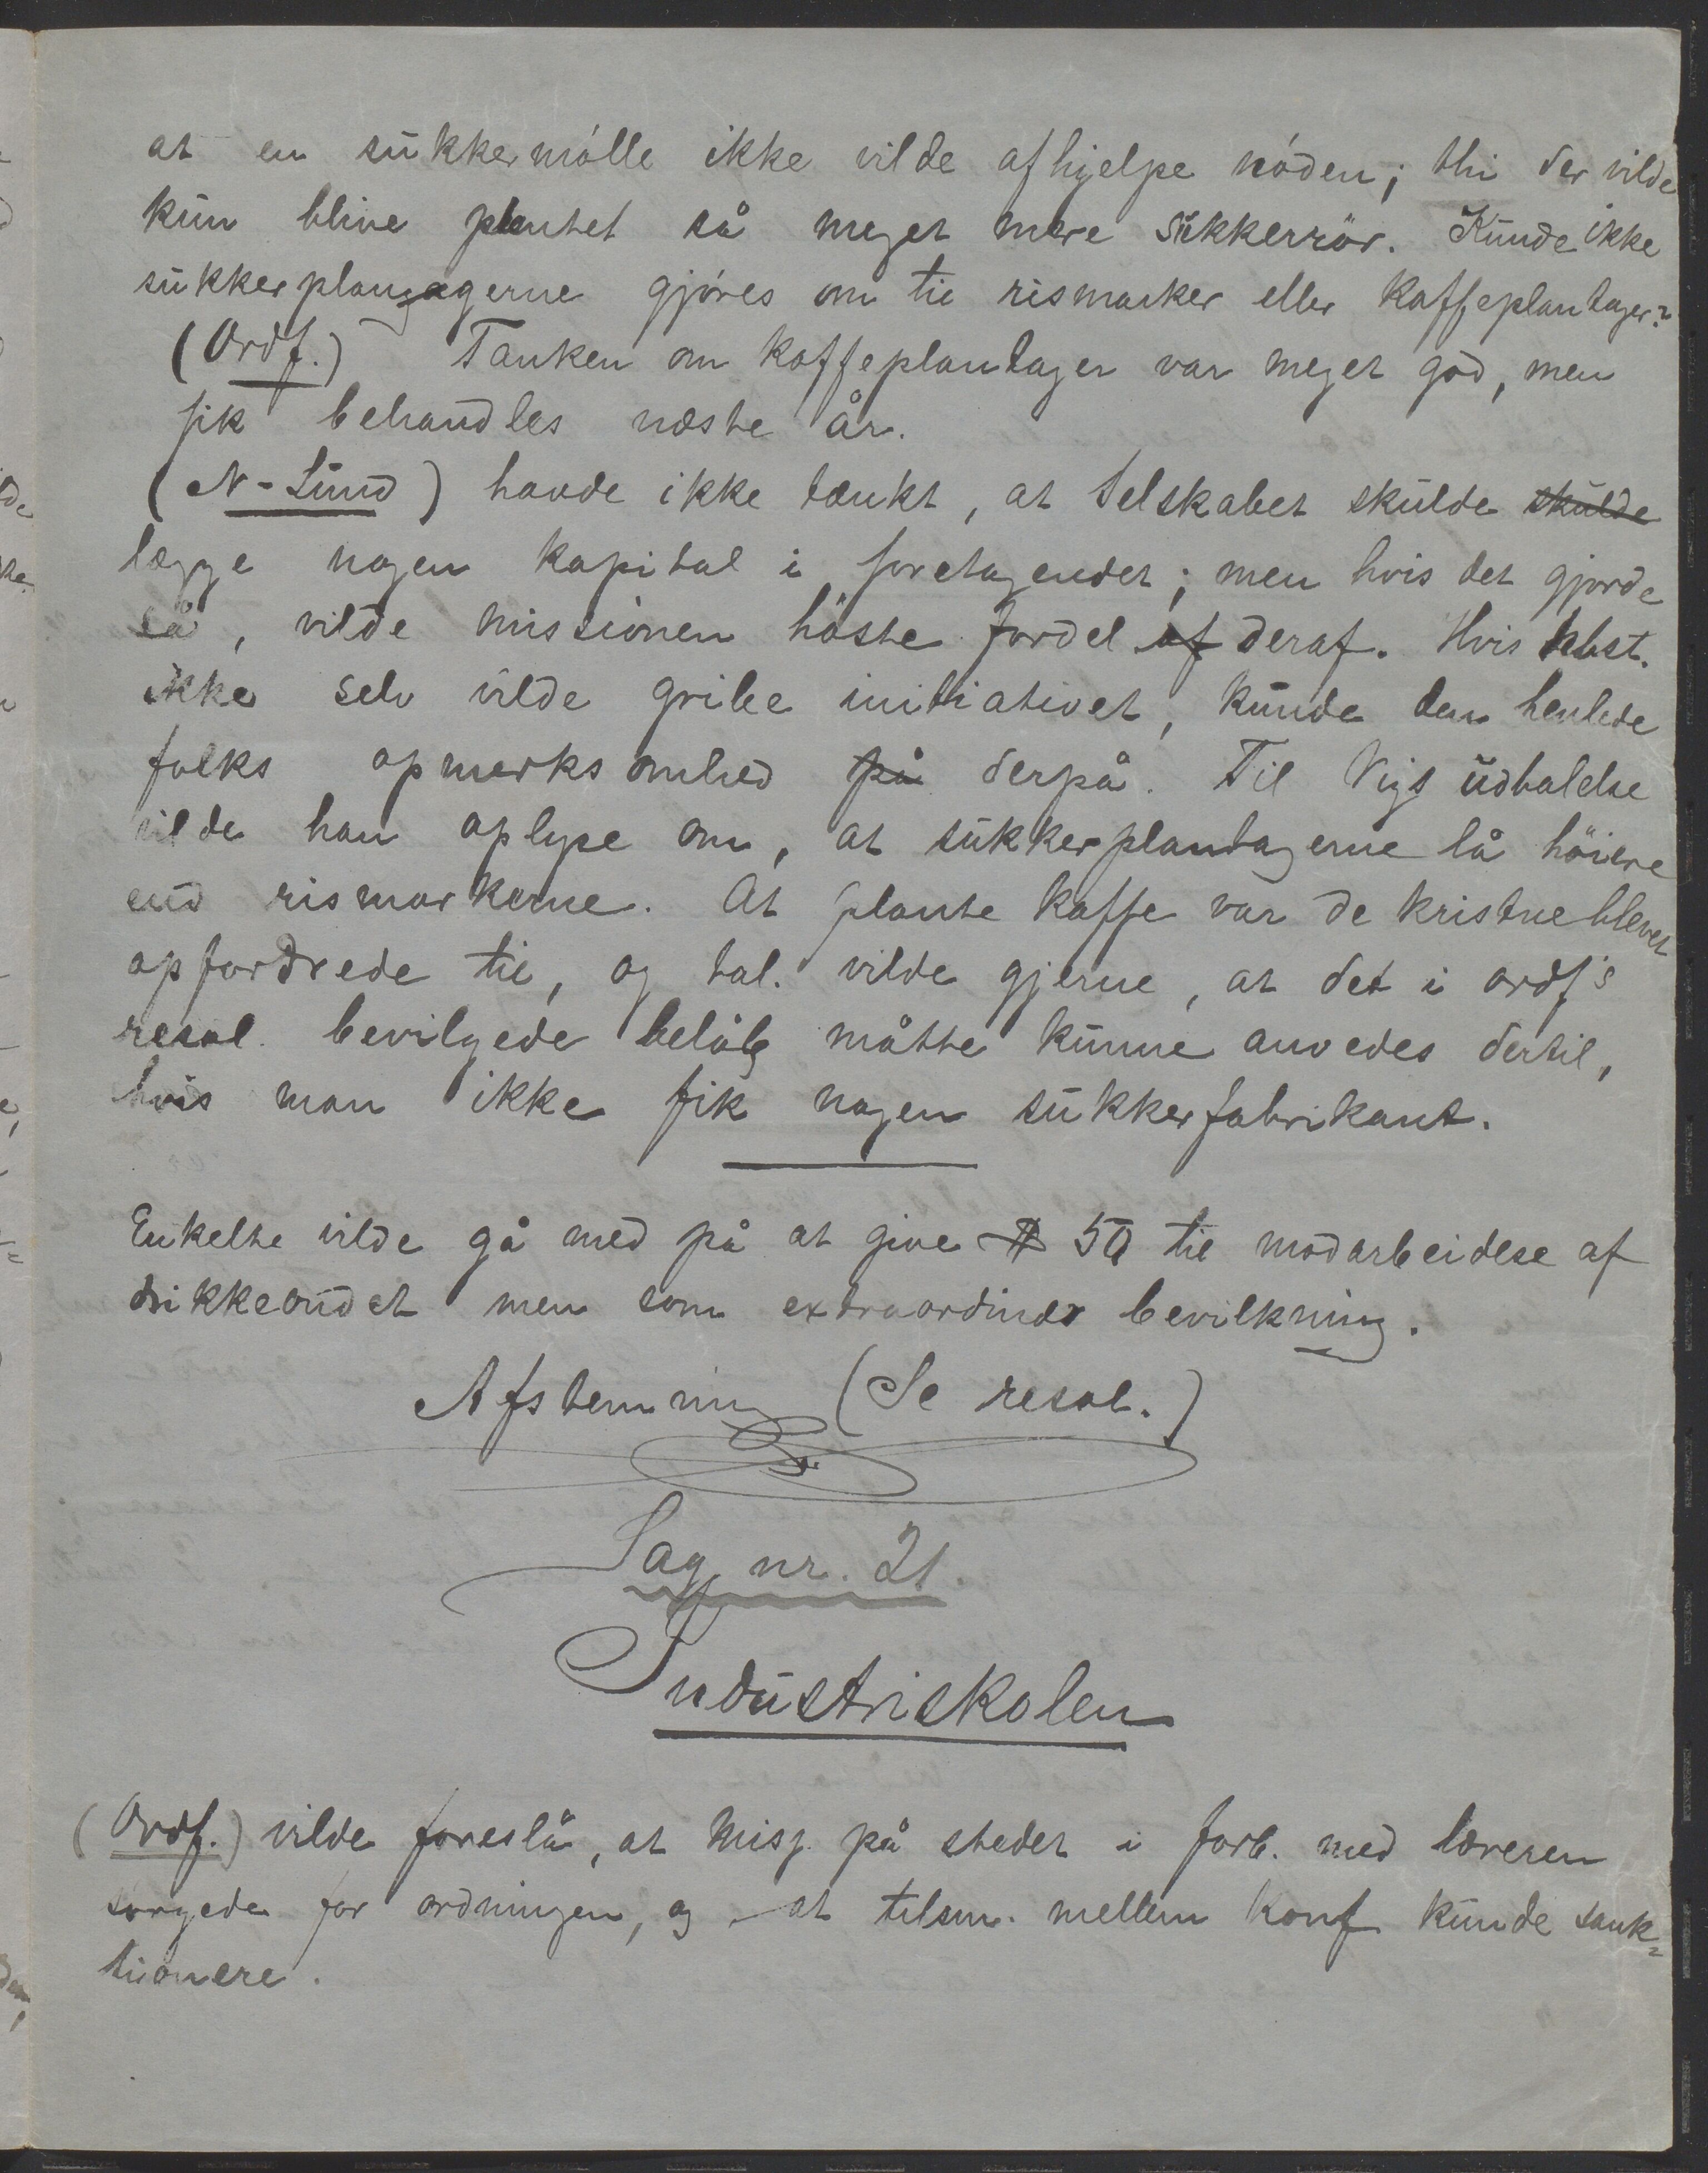 at en sukkermölle ikke vilde afhjelpe nöden; thi der vilde
kun blive plantet så meget mere sukkerrör. Kunde ikke
sukkerplantagerne gjöres om til rismarker eller kaffeplantager?
(Ordf.) Tanken om kaffeplantager var meget god, men
fik behandles næste år.
(N-Lund) havde ikke tænkt, at Selskabet skulde skulde
lægge nogen kapital i foretagendet; men hvis det gjorde
så, vilde missionen höste fordel af deraf. Hvis best.
ikke selv vilde gribe initiativet, kunde den henlede
folks opmerksomhed på derpå. Til Vigs udtalelse
vilde han oplyse om, at sukkerplantagerne lå höiere
end rismarkerne. At plante kaffe var de kristne blevet
opfordrede til, og tal. vilde gjerne, at det i ordf's
resol. bevilgede belöb måtte kunne anvedes dertil,
hvis man ikke fik nogen sukkerfabrikant.
Enkelte vilde gå med på at give $ 50 til modarbeidese af
drikkeondet men som extraordinær bevilkning.
Afstemning (Se resol.)
Sag nr. 21.
Industriskolen
(Ordf.) vilde foreslå, at misj. på stedet i forb. med læreren
sörgede for ordningen, og at tilsm. mellem konf kunde sank-
tionere.